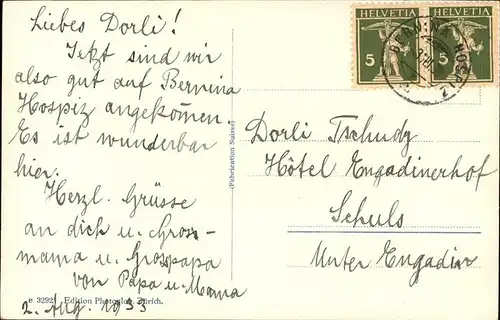 Liebes Dorli!
Jetzt sind wir
also gut auf Bernina
Hospiz angekommen.
Es ist wunderbar
hier.
Herzl. Grüsse
an dich u. Gross-
mama u. Grosspapa
von Papa u. Mama
2. Aug. 1933
32921 Edition Photoglob, Zürich.
(Fabrication Suisse)
HELVETIA
5
HELVETIA
5
BERNINA HOSPIZ
Dorli Tschudy
Hôtel Engadinerhof
Schuls
Unter Engadin